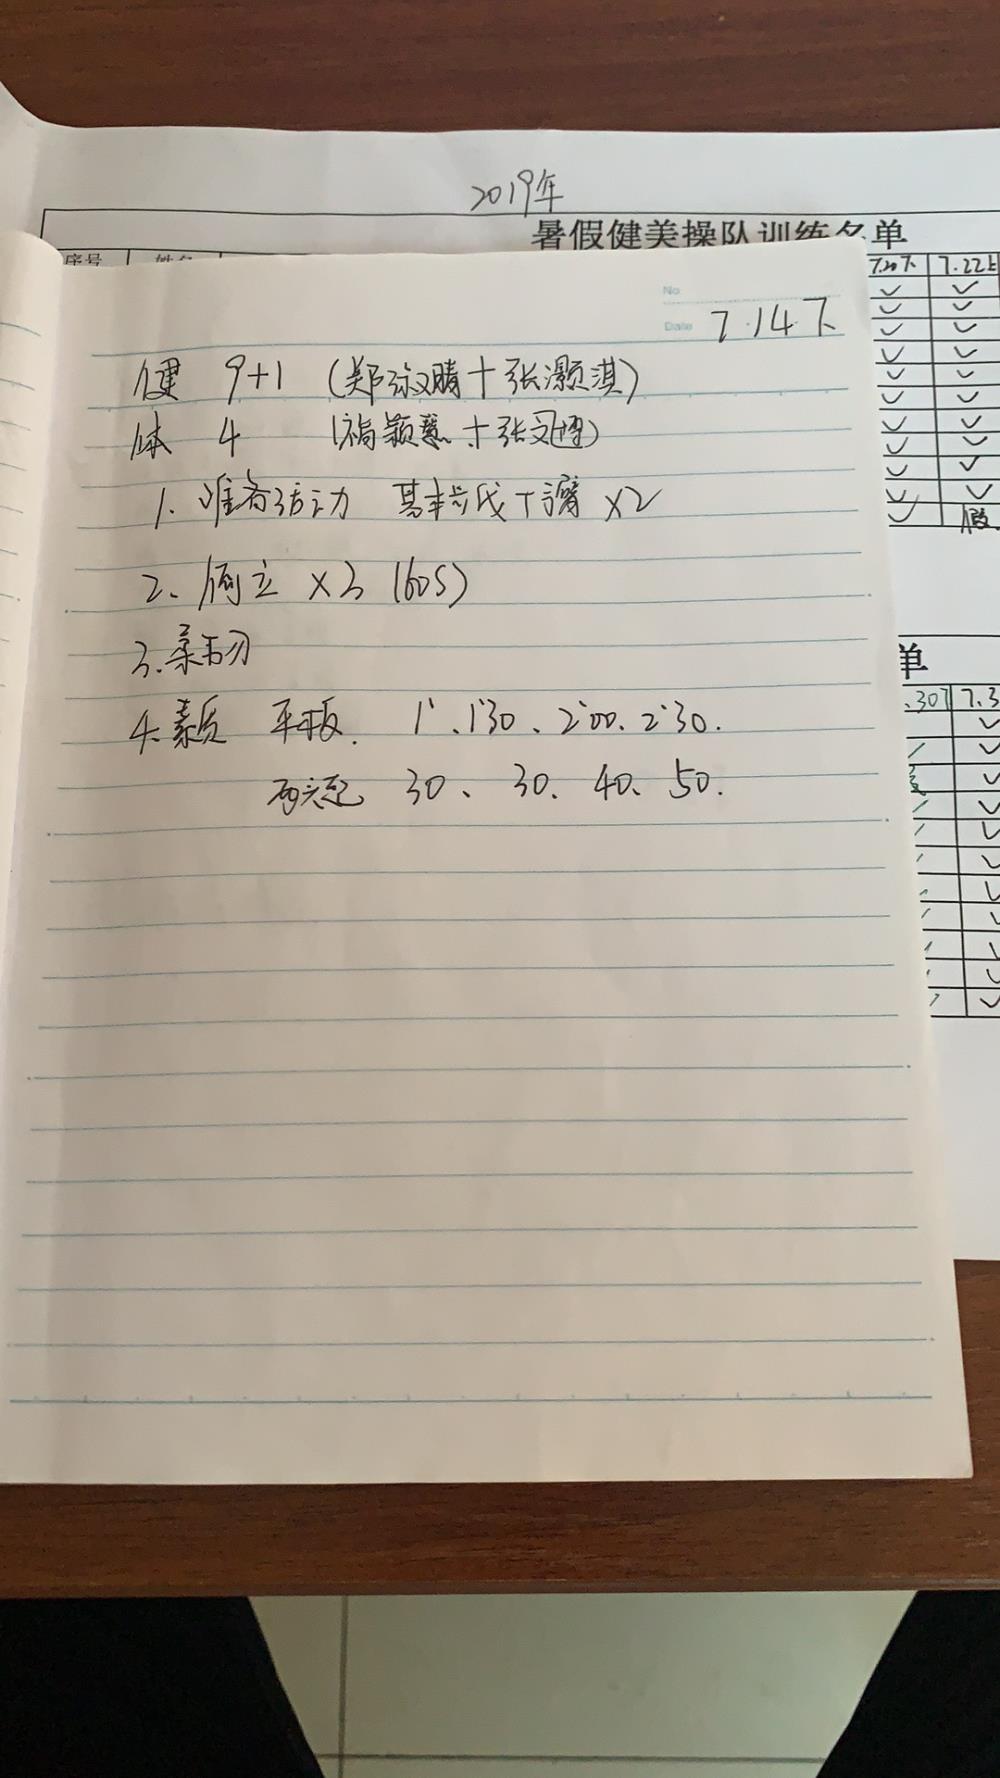 2019年
暑假健美操队训练名单
序号 姓名 7.20下 7.22上
假
单
.30下 7.3
No
Date 7.14下
健 9+1 (郑 晴+张灏淇)
体 4 ( 颖慧+张 )
1. 准备活动 基本步伐+手臂 ×2
2、倒立 ×3 (60S)
3.柔韧
4.素质 平板. 1'、1'30、2'00、2'30.
两头起 30、30、40、50.